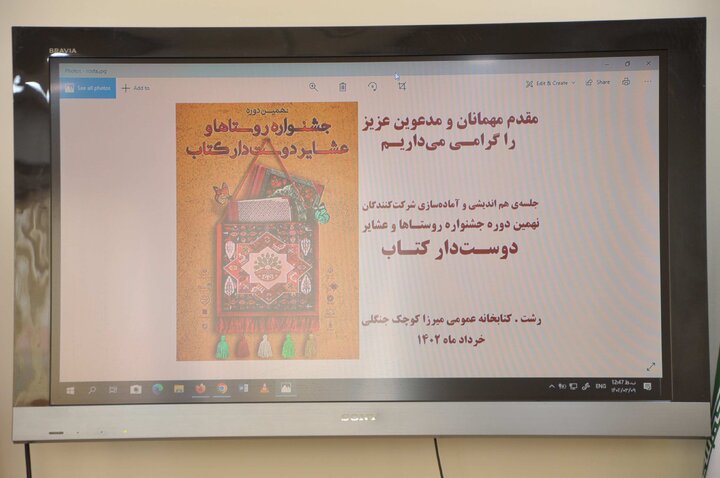 BRAVIA
Photos - rosta.jpg
See all photos
Add to
Edit & Create
Share
نهمین دوره
جشنواره روستاها و
عشایر دوست‌دار کتاب
مقدم مهمانان و مدعوین عزیز
را گرامی می‌داریم
جلسه‌ی هم اندیشی و آماده‌سازی شرکت‌کنندگان
نهمین دوره جشنواره روستاها و عشایر
دوست‌دار کتاب
رشت . کتابخانه عمومی میرزا کوچک جنگلی
خرداد ماه ۱۴۰۲
ENG
۱۲:۴۷ ب.ظ
۱۴۰۲/۰۳/۰۹
SONY